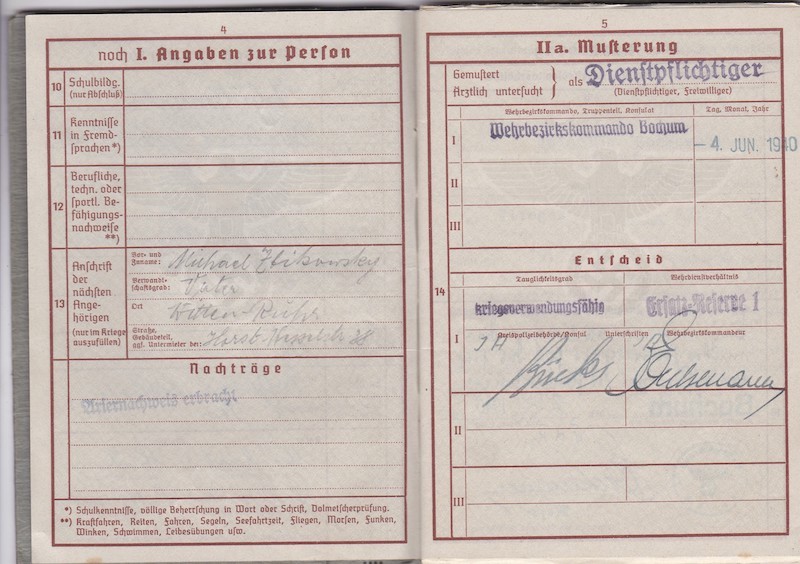 4
noch I. Angaben zur Person
10 Schulbildg.
(nur Abschluß)
11 Kenntnisse
in Fremd-
sprachen *)
12 Berufliche,
techn. oder
sportl. Be-
fähigungs-
nachweise
**)
13 Anschrift
der
nächsten
Ange-
hörigen
(nur im Kriege
auszufüllen)
Vor- und
Zuname: Michael
Verwandt-
schaftsgrad: Vater
Ort Witten-Ruhr
Straße,
Gebäudeteil,
ggf. Untermieter bei: 38
Nachträge
Ariernachweis erbracht
*) Schulkenntnisse, völlige Beherrschung in Wort oder Schrift, Dolmetscherprüfung.
**) Kraftfahren, Reiten, Fahren, Segeln, Seefahrtzeit, Fliegen, Morsen, Funken,
Winken, Schwimmen, Leibesübungen usw.
5
IIa. Musterung
Gemustert
Ärztlich untersucht } als Dienstpflichtiger
(Dienstpflichtiger, Freiwilliger)
Wehrbezirkskommando, Truppenteil, Konsulat
Tag, Monat, Jahr
I Wehrbezirkskommando Bochum
- 4. JUN. 1940
II
III
14
Entscheid
Tauglichkeitsgrad
Wehrdienstverhältnis
kriegsverwendungsfähig
Ersatz-Reserve 1
I
Kreispolizeibehörde/Konsul Unterschriften Wehrbezirkskommandeur
II
III